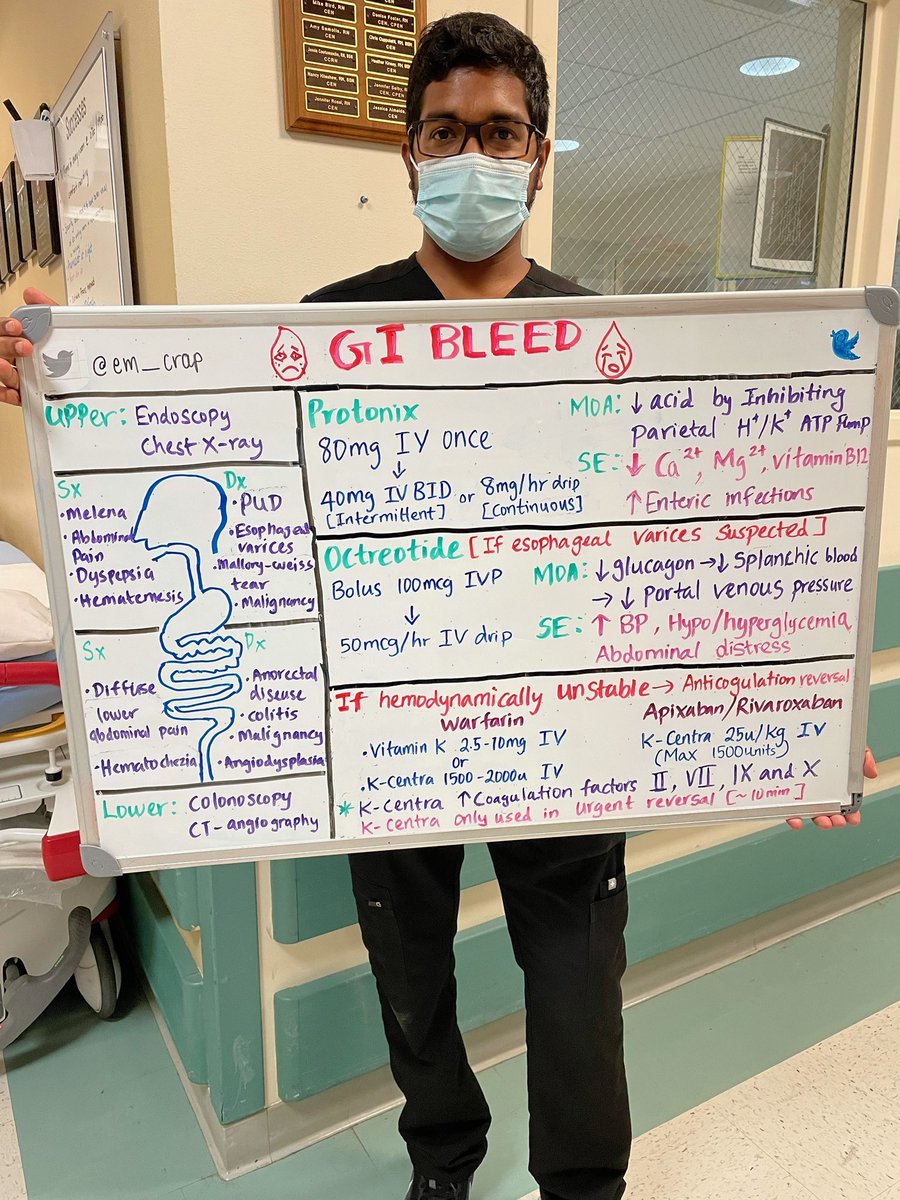 Mike Bird, RN
CEN
Denise Foster, RN
CEN, CPEN
Amy
CEN
Chris
CEN
CCRN
Heather
Nancy Hileshew, RN, BSN
CEN
Jennifer
CEN, CPEN
Jennifer Rossi, RN
CEN
Jessica Almeida,
CEN
Successes
@em_crap
GI BLEED
Upper: Endoscopy
Chest X-ray
Sx
• Melena
• Abdominal
Pain
• Dyspepsia
• Hematemesis
Dx
• PUD
• Esophageal
varices
• Mallory-weiss
tear
• Malignancy
Sx
• Diffuse
lower
abdominal pain
• Hematochezia
Dx
• Anorectal
disease
• colitis
• Malignancy
• Angiodysplasia
Lower: Colonoscopy
CT-angiography
Protonix
80mg IV once
↓
40mg IV BID or 8mg/hr drip
[Intermittent] [Continuous]
MOA: ↓ acid by Inhibiting
parietal H⁺/K⁺ ATP Pump
SE: ↓ Ca²⁺, Mg²⁺, vitamin B12
↑ Enteric infections
Octreotide [If esophageal varices suspected]
Bolus 100mcg IVP
↓
50mcg/hr IV drip
MOA: ↓glucagon → ↓ Splanchic blood
→ ↓ Portal venous pressure
SE: ↑ BP, Hypo/hyperglycemia,
Abdominal distress
If hemodynamically unstable → Anticogulation reversal
Warfarin
• Vitamin K 2.5-10mg IV
or
• K-Centra 1500-2000u IV
Apixaban/Rivaroxaban
K-Centra 25u/kg IV
(Max 1500units)
* K-Centra ↑ Coagulation factors II, VII, IX and X
K-Centra only used in urgent reversal [~10min]